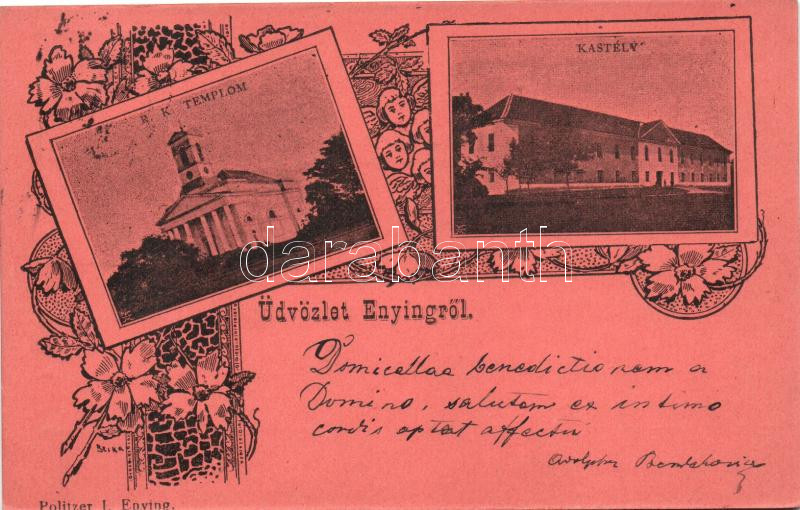 R. K. TEMPLOM
KASTÉLY
darabanth
Üdvözlet Enyingről.
Domicellae benedictionem a
Domino, salutem ex intimo
cordis optat affectu
Stika
Politzer I. Enying.